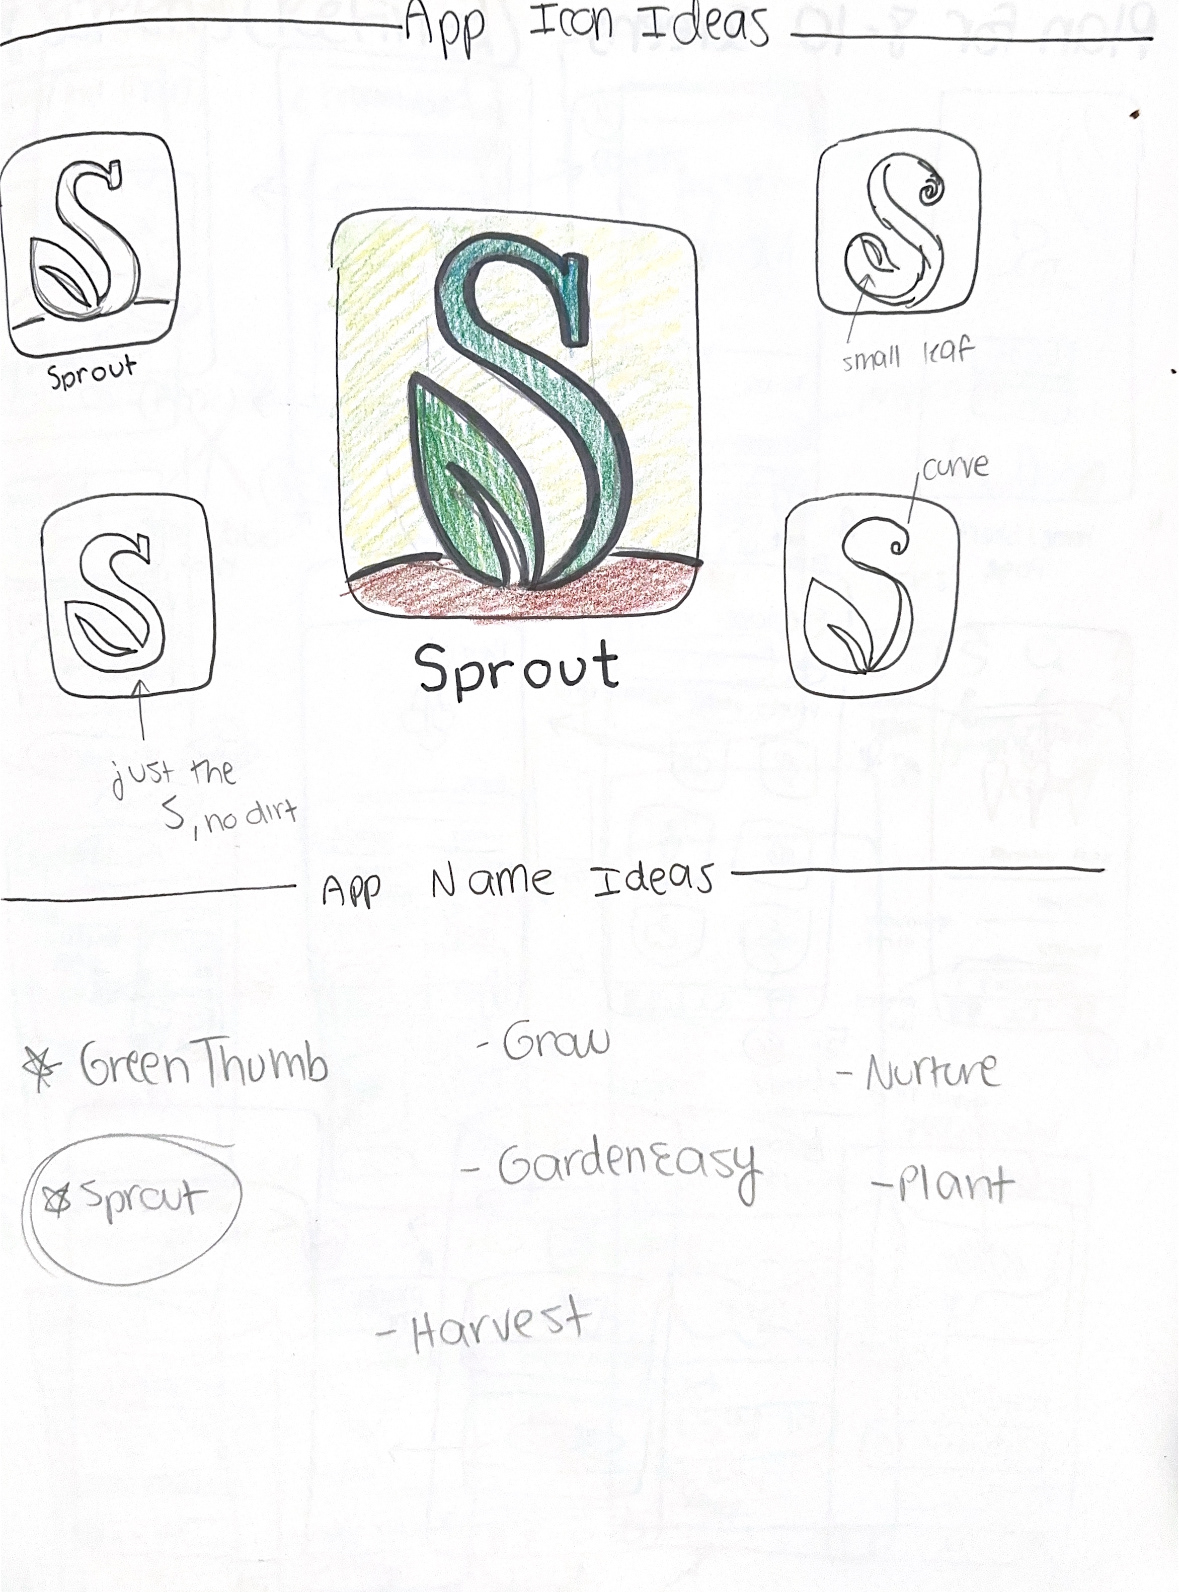 App Icon Ideas
Sprout
small leaf
curve
Sprout
just the
S, no dirt
App Name Ideas
GreenThumb
- Grow
- Nurture
Sprout
- GardenEasy
- Plant
- Harvest